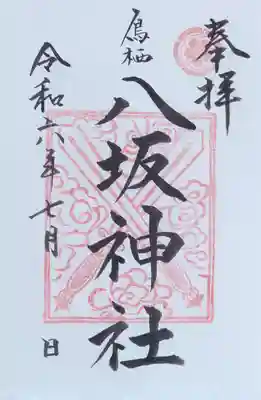 奉拝
鳥栖
八坂神社
令和六年七月 日